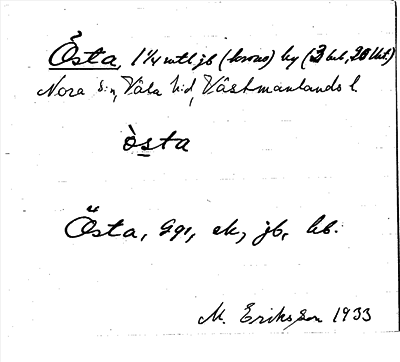 Östa, 1 1/4 mtl jb (krono) by (2 bel, 20 lht.)
Nora sn, Våla hd, Västmanlands l
òsta
Östa, Ggr, ek, jb, hb.
M. Eriksson 1933